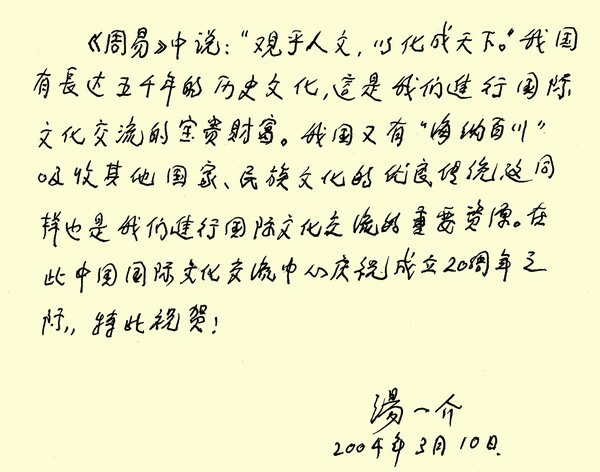 《周易》中说：“观乎人文，以化成天下。”我国
有長达五千年的历史文化，這是我们進行国际
文化交流的宝贵财富。我国又有“海纳百川”
吸收其他国家、民族文化的优良传统这同
样也是我们進行国际文化交流的重要资源。在
此中国国际文化交流中心庆祝成立20周年之
际，特此祝贺！
湯一介
2004年3月10日.